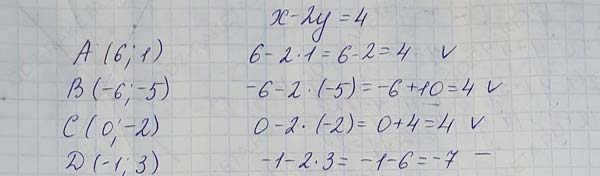 x-2y=4
A (6; 1) 6-2·1=6-2=4 v
B (-6; -5) -6-2·(-5)=-6+10=4 v
C (0; -2) 0-2·(-2)=0+4=4 v
D (-1; 3) -1-2·3=-1-6=-7 —